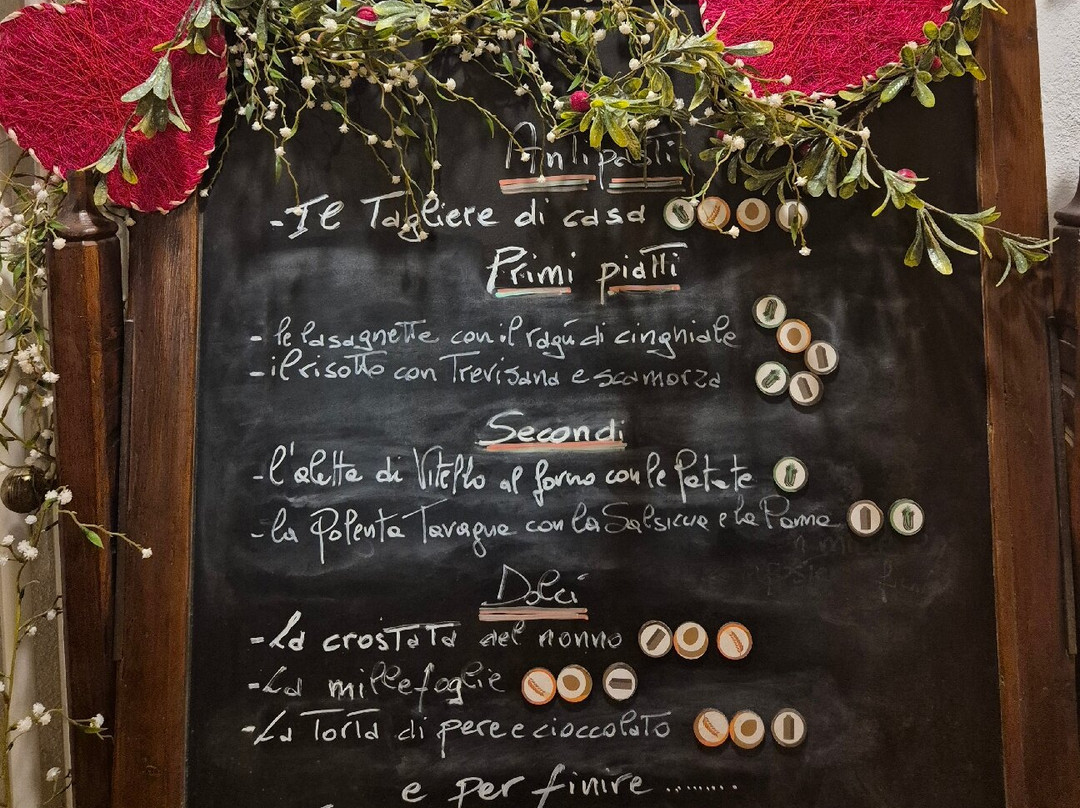 Antipasti
- Il Tagliere di casa
Primi piatti
- le lasagnette con il ragù di cinghiale
- il risotto con Trevisana e scamorza
Secondi
- l'aletta di Vitello al forno con le patate
- la Polenta Taragna con la Salsiccia e la Panna
Dolci
- La crostata del nonno
- La millefoglie
- La Torta di pere e cioccolato
e per finire ........